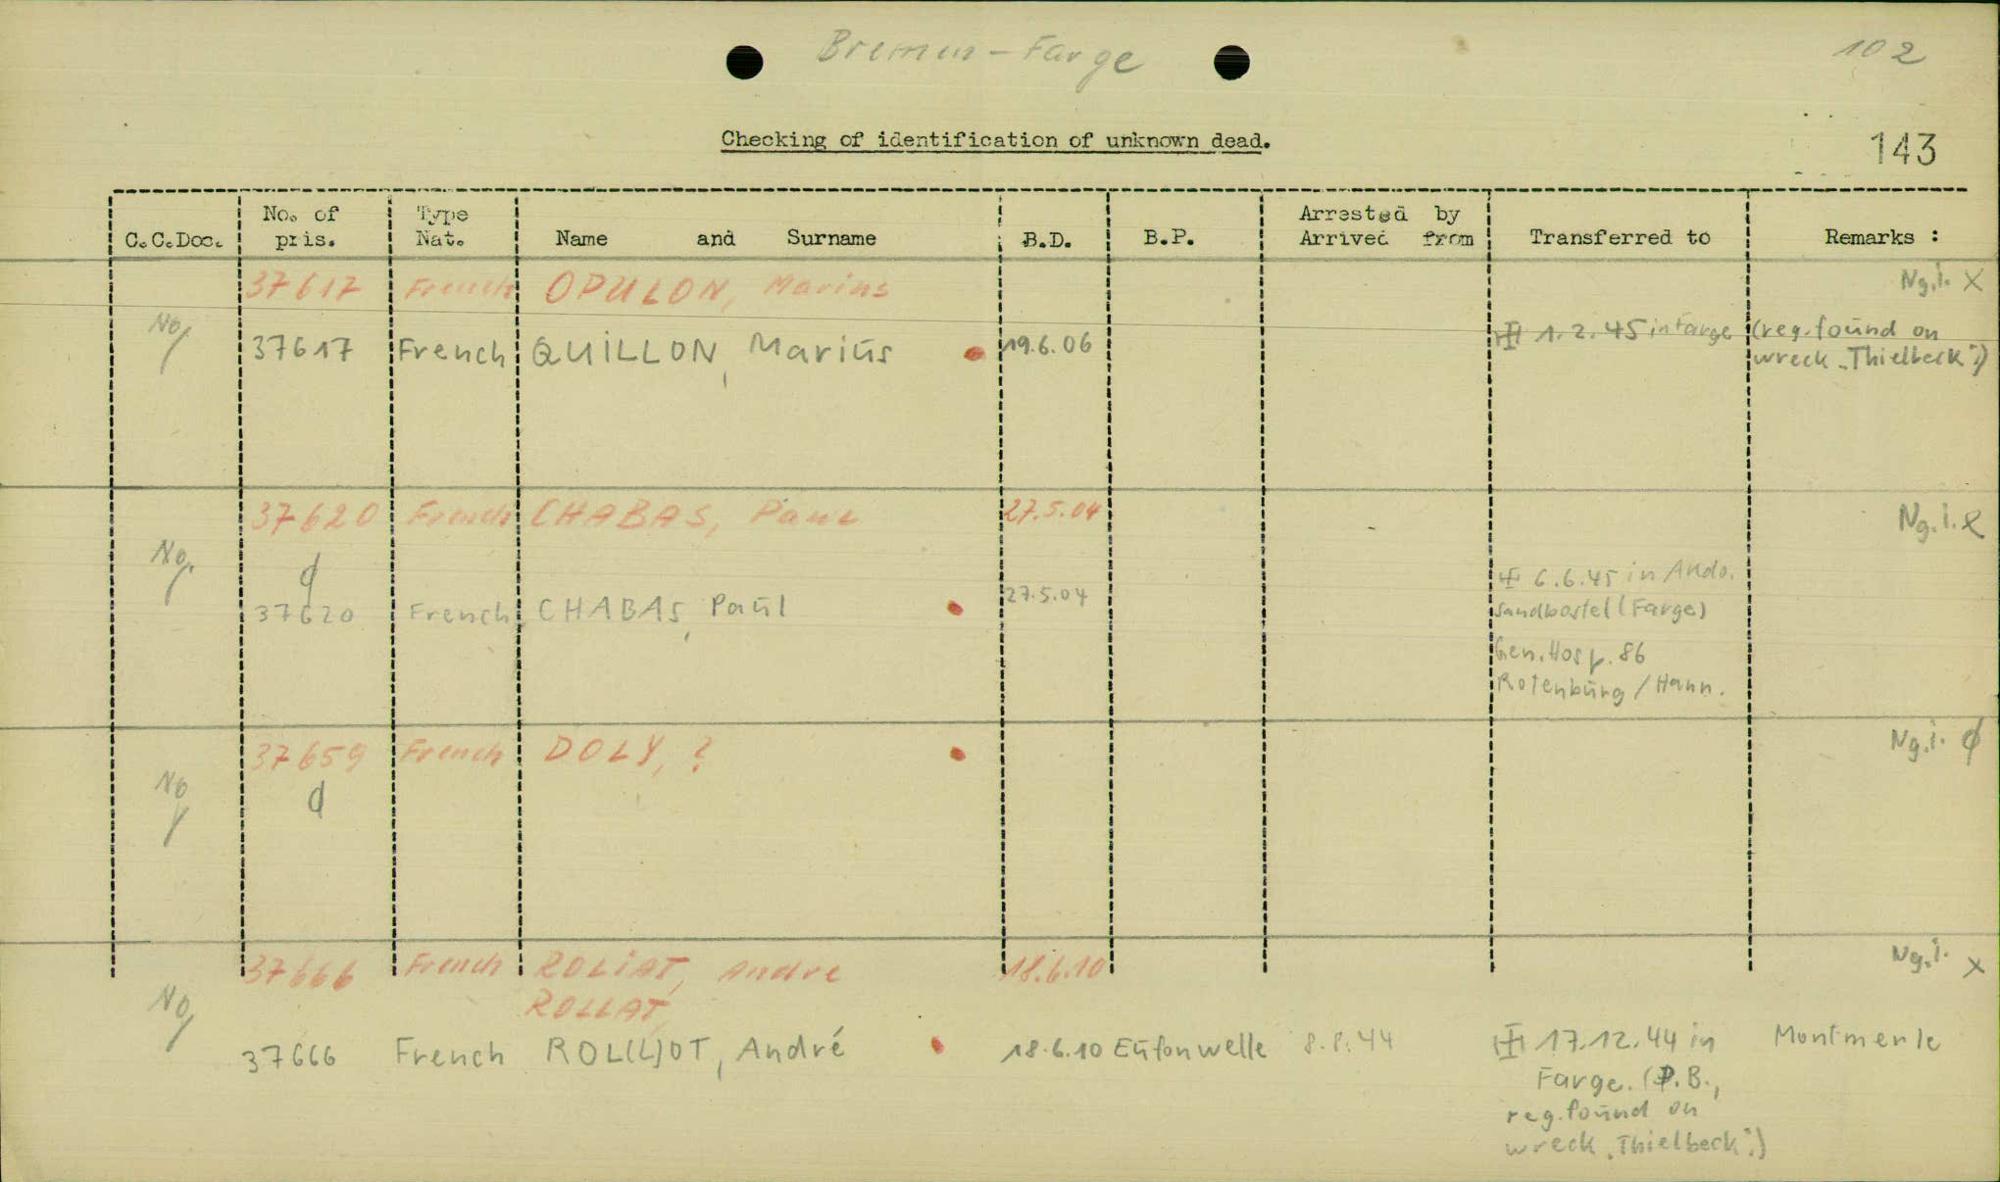 Bremen-Farge
102
Checking of identification of unknown dead.
143
C.C.Doc. No. of pris. Type Nat. Name and Surname B.D. B.P. Arrested by Arrived from Transferred to Remarks :
37617 French OPULON, Marius Ng.i. x
No 37617 French QUILLON, Marius 19.6.06 1.2.45 in Farge (reg. found on
wreck „Thielbeck".)
37620 French CHABAS, Paul 27.5.04 Ng.i.
No. 37620 French CHABAS, Paul 27.5.04 6.6.45 in
Sandbostel (Farge)
Gen. Hosp. 86
Rotenburg / Hann.
37659 French DOLY, ? Ng.i.
No
37666 French ROLIAT, Andre 18.6.10 Ng.i. x
ROLLAT,
No 37666 French ROL(L)OT, André 18.6.10 Eufonwelle 8.8.44 17.12.44 in Montmerle
Farge. (P.B.,
reg. found on
wreck „Thielbeck".)